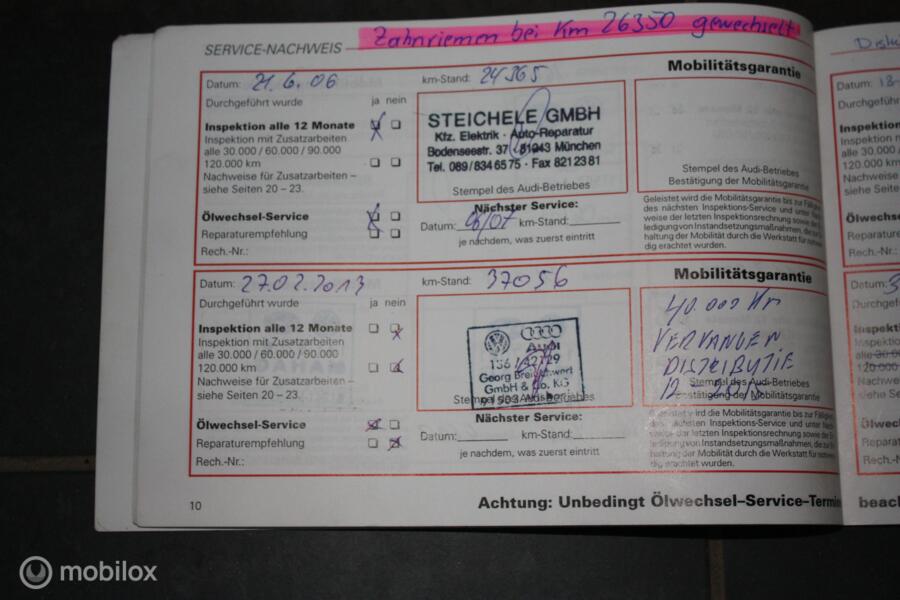 Zahnriemen bei Km 26350 gewechselt
SERVICE-NACHWEIS
Datum: 21.6.06
km-Stand: 24365
Mobilitätsgarantie
Durchgeführt wurde ja nein
Inspektion alle 12 Monate
Inspektion mit Zusatzarbeiten
alle 30.000 / 60.000 / 90.000
120.000 km
Nachweise für Zusatzarbeiten –
siehe Seiten 20 – 23.
STEICHELE GMBH
Kfz. Elektrik · Auto-Reparatur
Bodenseestr. 37 81243 München
Tel. 089/834 65 75 · Fax 821 23 81
Stempel des Audi-Betriebes
Stempel des Audi-Betriebes
Bestätigung der Mobilitätsgarantie
Ölwechsel-Service
Reparaturempfehlung
Rech.-Nr.:
Nächster Service:
Datum: 06/07 km-Stand:
je nachdem, was zuerst eintritt
Geleistet wird die Mobilitätsgarantie bis zur
des nächsten Inspektions-Service und unter
weise der letzten Inspektionsrechnung sowie der
ledigung von Instandsetzungsmaßnahmen, die zur
haltung der Mobilität durch die Werkstatt für notwen-
dig erachtet wurden.
Datum: 27.02.2013
km-Stand: 37056
Mobilitätsgarantie
Durchgeführt wurde ja nein
Inspektion alle 12 Monate
Inspektion mit Zusatzarbeiten
alle 30.000 / 60.000 / 90.000
120.000 km
Nachweise für Zusatzarbeiten –
siehe Seiten 20 – 23.
Audi
Georg
GmbH & Co. KG
40.000 Km
VERVANGEN
DISTRIBUTIE
Stempel des Audi-Betriebes
Bestätigung der Mobilitätsgarantie
Ölwechsel-Service
Reparaturempfehlung
Rech.-Nr.:
Nächster Service:
Datum: km-Stand:
je nachdem, was zuerst eintritt
Geleistet wird die Mobilitätsgarantie bis zur
des nächsten Inspektions-Service und unter
weise der letzten Inspektionsrechnung sowie der
ledigung von Instandsetzungsmaßnahmen, die zur
haltung der Mobilität durch die Werkstatt für notwen-
dig erachtet wurden.
10
Achtung: Unbedingt Ölwechsel–Service–Termin
mobilox